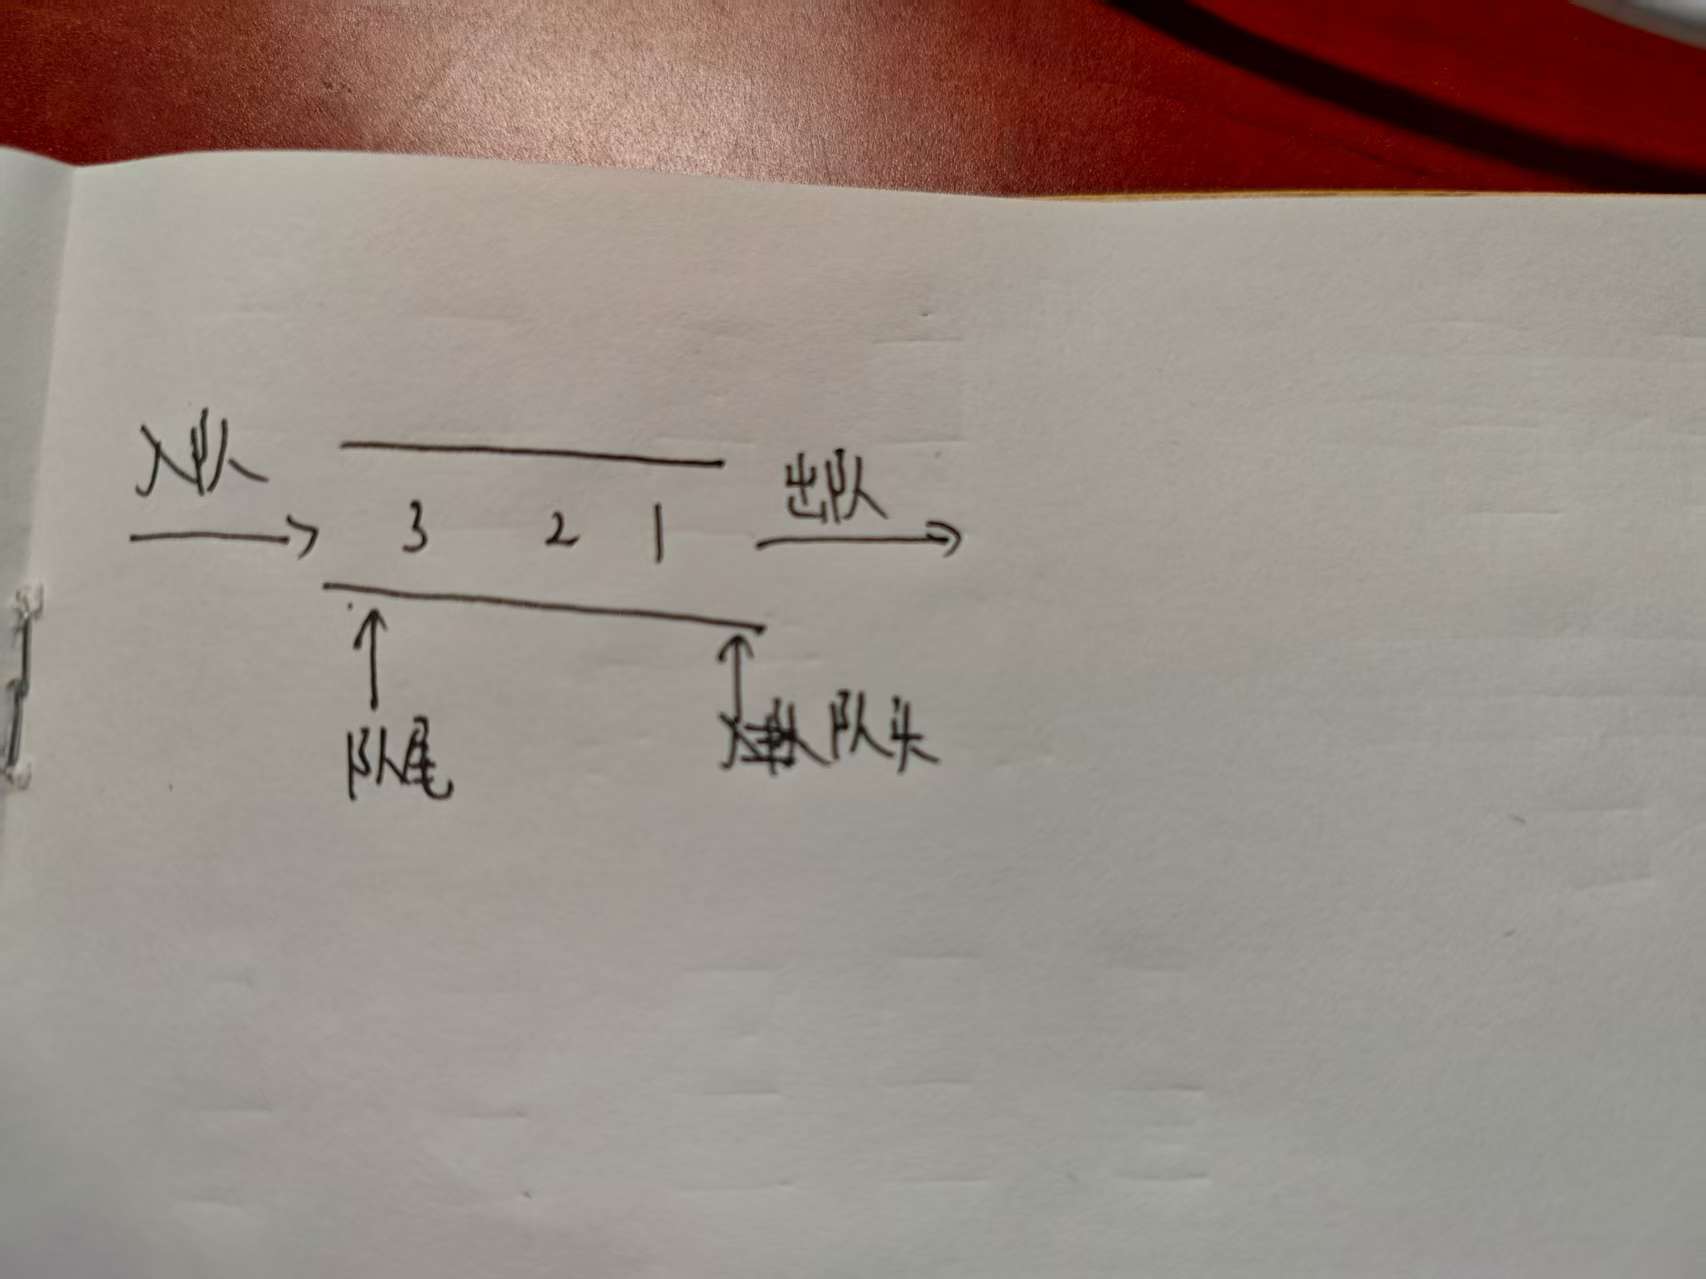 入队 出队
3 2 1
队尾 队头